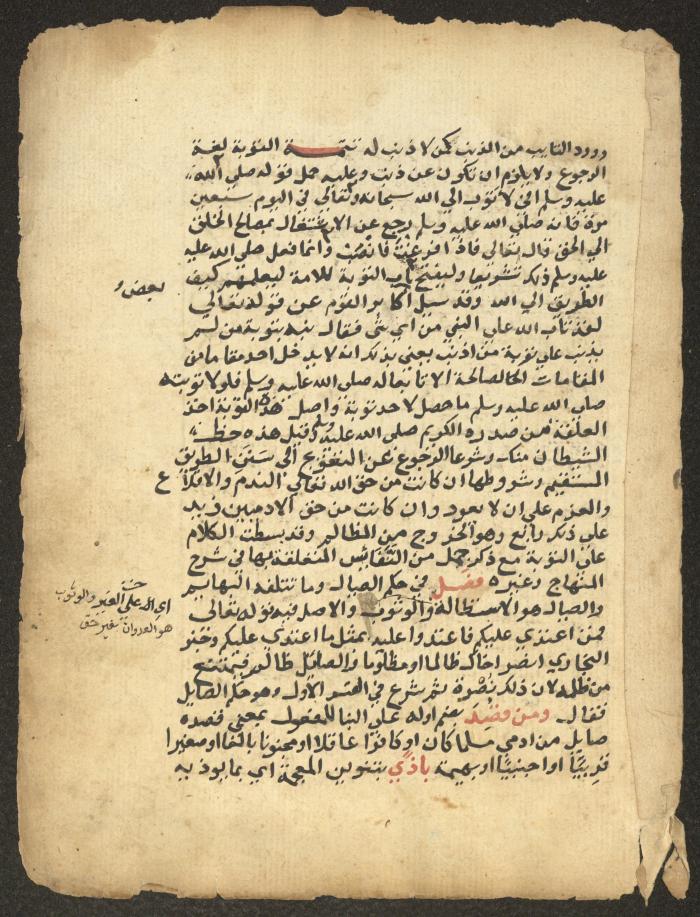 وورد التايب من الذنب كمن لا ذنب له تتمـــة التوبة لغة
الرجوع ولا يلزم ان تكون عن ذنب وعليه حمل قوله صلي الله
عليه وسلم اني لاتوب الي الله سبحانه وتعالي في اليوم سبعين
مرة فانه صلي الله عليه وسلم رجع عن الاشتغال بمصالح الخلق
الي الحق قال تعالي فاذا فرغت فانصب وانما فعل صلي الله عليه
عليه وسلم ذلك تشريعا وليفتح باب التوبة للامة ليعلمهم كيف
الطريق الي الله وقد سيل اكابر القوم عن قوله تعالي
بعض
لقد تاب الله علي النبي من اي شي فقال نبه بتوبة من لم
يذنب علي توبة من اذنب يعني بذلك انه لا يدخل احد مقاما من
المقامات الصالحة الا تابعا له صلي الله عليه وسلم فلولا توبته
صلي الله عليه وسلم ما حصل لاحد توبة واصل هذه التوبة اخذ
العلقة من صدره الكريم صلي الله عليه وسلم وقيل هذه حظ
الشيطان منك وشرعا الرجوع عن التعوج الي سنن الطريق
المستقيم وشروطها ان كانت من حق الله تعالي الندم والاقلاع
والعزم علي ان لا يعود وان كانت من حق الادميين زيد
علي ذلك رابع وهو الخروج من المظالم وقد بسطت الكلام
علي التوبة مع ذكر جمل من النفايس المتعلقة بها في شرح
المنهاج وغيره فصل في حكم الصيال وما تتلفه البهايم
والصيال هو الاستطالة والوثوب والاصل فيه قوله تعالي
اي علي الغير والوثوب
هو العدوان بغير حق
فمن اعتدي عليكم فاعتدوا عليه بمثل ما اعتدي عليكم وخبر
البخاري انصر اخاك ظالما او مظلوما والصايل ظالم فيمنع
من ظلمه لان ذلك نصرة ثم شرع في القسم الاول وهو حكم الصايل
فقال ومن قصد بضم اوله علي البنا للمفعول بمعني قصده
صايل من ادمي مسلما كان او كافرا عاقلا او مجنونا بالغا او صغيرا
قريبا او اجنبيا او بهيمة باذي بتنوين المعجمة اي بما يوذيه